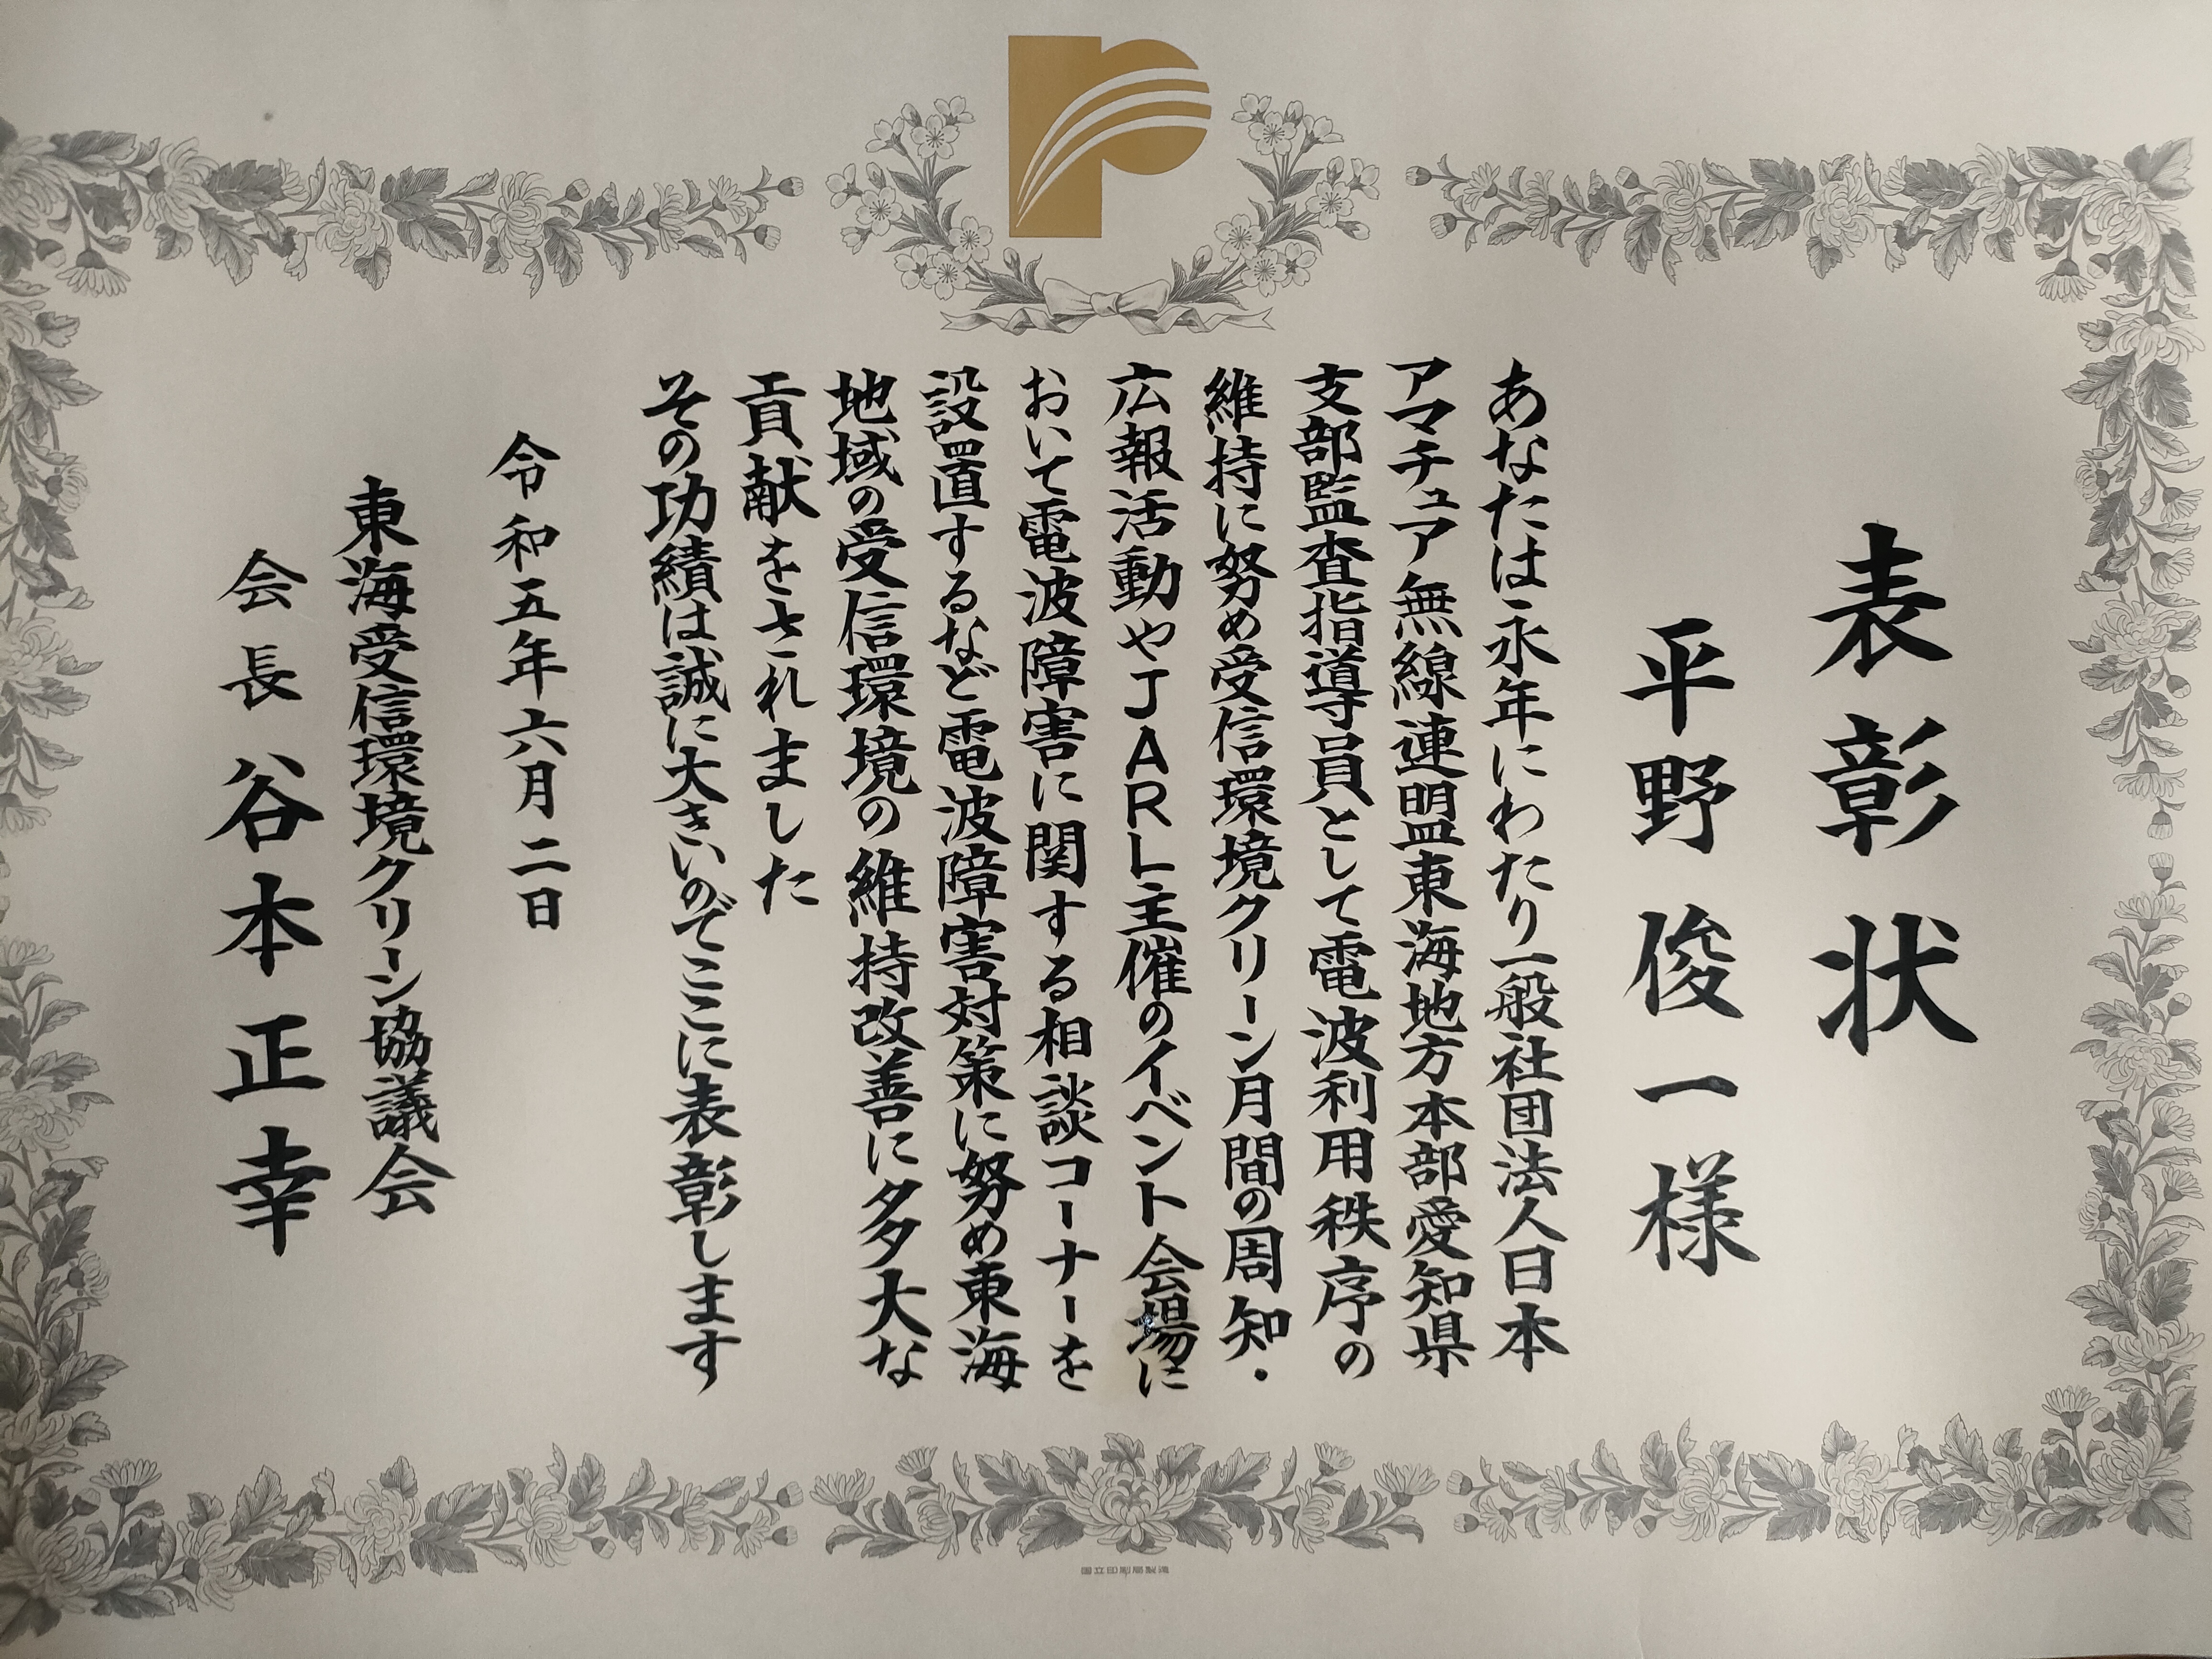 表彰状
平野俊一様
あなたは永年にわたり一般社団法人日本
アマチュア無線連盟東海地方本部愛知県
支部監査指導員として電波利用秩序の
維持に努め受信環境クリーン月間の周知・
広報活動やJARL主催のイベント会場に
おいて電波障害に関する相談コーナーを
設置するなど電波障害対策に努め東海
地域の受信環境の維持改善に多大な
貢献をされました
その功績は誠に大きいのでここに表彰します
令和五年六月二日
東海受信環境クリーン協議会
会長 谷本正幸